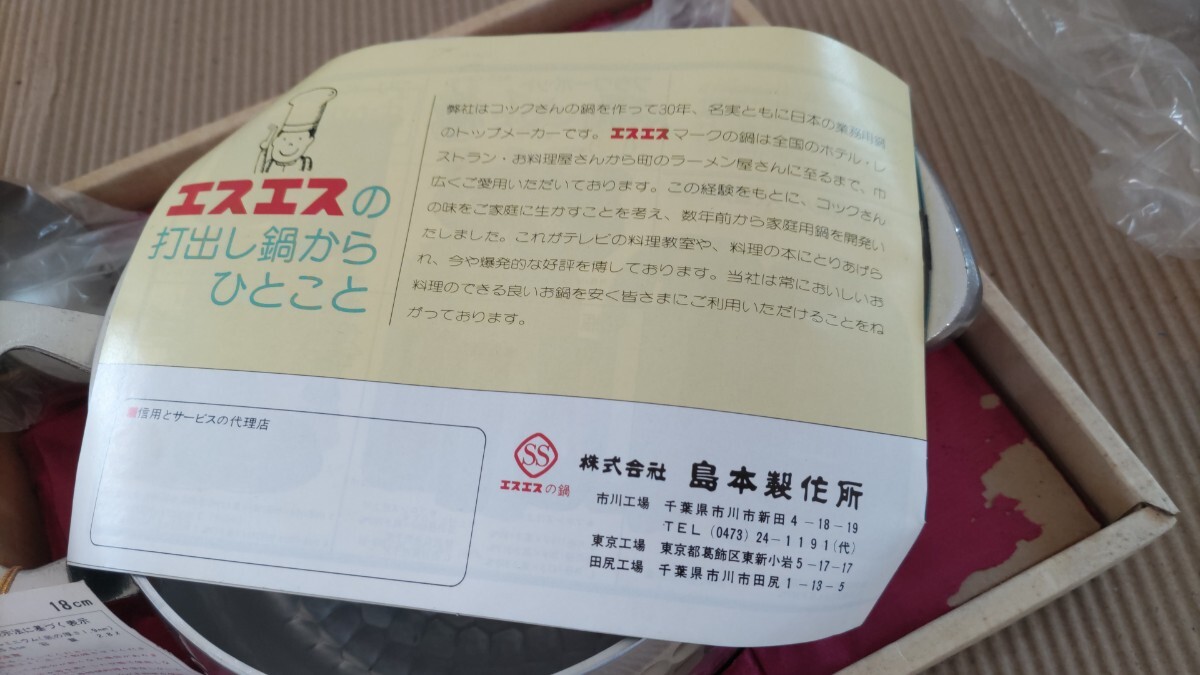 エスエスの
打出し鍋から
ひとこと
弊社はコックさんの鍋を作って30年、名実ともに日本の業務用鍋
のトップメーカーです。エスエスマークの鍋は全国のホテル・レ
ストラン・お料理屋さんから町のラーメン屋さんに至るまで、巾
広くご愛用いただいております。この経験をもとに、コックさん
の味をご家庭に生かすことを考え、数年前から家庭用鍋を開発い
たしました。これがテレビの料理教室や、料理の本にとりあげら
れ、今や爆発的な好評を博しております。当社は常においしいお
料理のできる良いお鍋を安く皆さまにご利用いただけることをね
がっております。
■信用とサービスの代理店
SS
エスエスの鍋
株式会社 島本製作所
市川工場 千葉県市川市新田4-18-19
TEL (0473) 24-1191(代)
東京工場 東京都葛飾区東新小岩5-17-17
田尻工場 千葉県市川市田尻1-13-5
18cm
示法に基づく表示